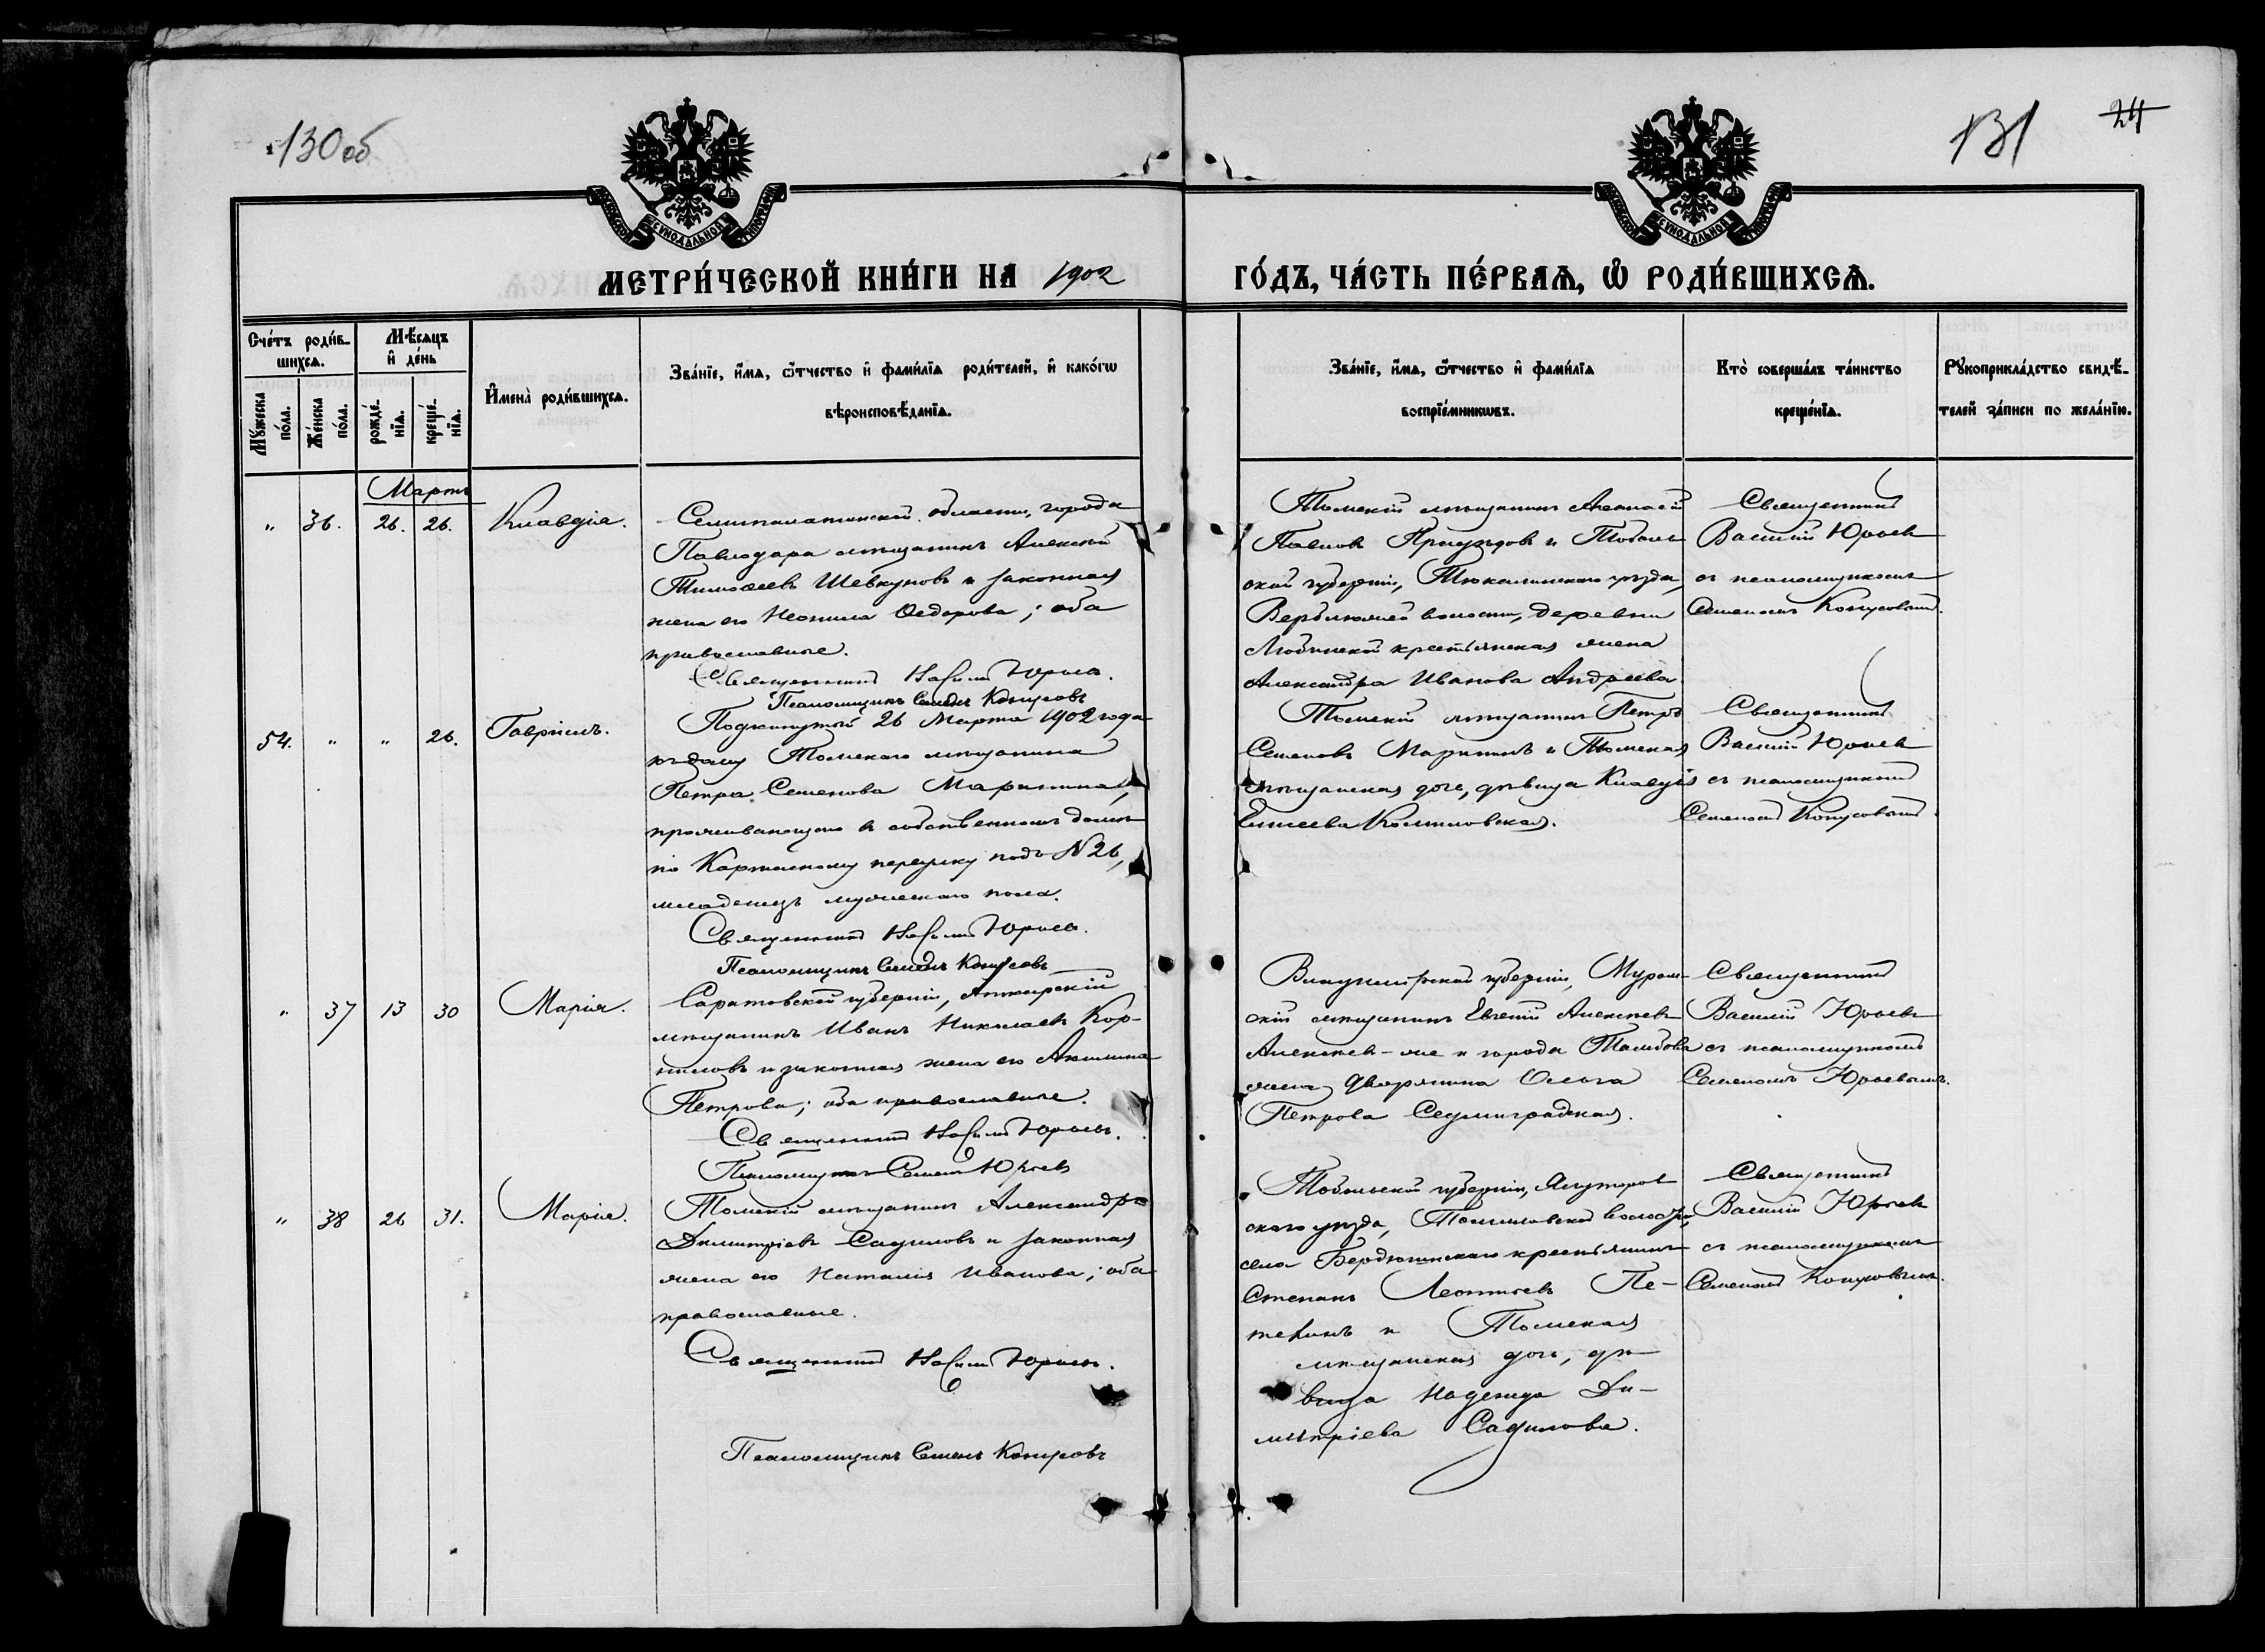 130 об
131
24
СУНОДАЛЬНОЙ
СУНОДАЛЬНОЙ
МЕТРИ́ЧЕСКОЙ КНИ́ГИ НА 1902
ГО́ДЪ, ЧА́СТЬ ПЕ́РВАЯ, Ѡ҆ РОДИ́ВШИХСѦ.
Сче́тъ роди́в-
шихсѧ.
Мꙋ́жеска по́ла.
Же́нска по́ла.
Мѣ́сѧцъ
и҆ де́нь
рожде́-
нїѧ.
креще́-
нїѧ.
И҆мена̀ роди́вшихсѧ.
Зва́нїе, и҆́мѧ, ѻ҆́тчество и҆ фами́лїѧ роди́телей, и҆ како́гѡ
вѣроисповѣ́данїѧ.
Зва́нїе, и҆́мѧ, ѻ҆́тчество и҆ фами́лїѧ
воспрїе́мникѡвъ.
Кто̀ соверша́лъ та́инство
креще́нїѧ.
Рꙋкоприкла́дство свидѣ́-
телей за́писи по жела́нїю.
Мартъ
" 36. 26. 26. Клавдія.
Семипалатинской области, города
Павлодара мѣщанинъ Алексѣй
Тимоѳеевъ Шевкуновъ и законная
жена его Неонила Ѳедорова; оба
православные.
Священникъ Василій Юрьевъ.
Псаломщикъ Семенъ Конусовъ
Томскій мѣщанинъ Аѳанасій
Павловъ и Тоболь
ской губерніи, Тюкалинскаго уѣзда,
волости, деревни
Любинской крестьянская жена
Александра Иванова Андреева.
Священникъ
Василій Юрьевъ
съ псаломщикомъ
Семеномъ Конусовымъ.
54. " " 26. Гавріилъ.
Подкинутый 26 Марта 1902 года
къ дому Томскаго мѣщанина
Петра Семенова Маринина,
проживающаго въ собственномъ домѣ
по переулку подъ № 26,
младенецъ мужескаго пола.
Священникъ Василій Юрьевъ.
Псаломщикъ Семенъ Конусовъ
Томскій мѣщанинъ Петръ
Семеновъ Марининъ и Томская
мѣщанская дочь, дѣвица Клавдія
Елисеева
Священникъ
Василій Юрьевъ
съ псаломщикомъ
Семеномъ Конусовымъ.
" 37 13 30 Марія.
Саратовской губерніи, Аткарскій
мѣщанинъ Иванъ Николаевъ Кор-
ниловъ и законная жена его Акилина
Петрова; оба православные.
Священникъ Василій Юрьевъ.
Псаломщикъ Семенъ Юрьевъ
Владимірской губерніи, Муром-
скій мѣщанинъ Евгеній Алексѣевъ
Алексѣев-же и города Тамбова
жена дворянина Ольга
Петрова Седмиградская.
Священникъ
Василій Юрьевъ
съ псаломщикомъ
Семеномъ Юрьевымъ.
" 38 26 31. Марія.
Томскій мѣщанинъ Александръ
Димитріевъ Садиловъ и законная
жена его Наталія Иванова; оба
православные.
Священникъ Василій Юрьевъ.
Псаломщикъ Семенъ Конусовъ
Тобольской губерніи, Ялуторов
скаго уѣзда, волости,
села Бердюгинскаго крестьянинъ
Степанъ Леонтьевъ Пе-
и Томская
мѣщанская дочь, дѣ-
вица Надежда Ди-
митріева Садилова.
Священникъ
Василій Юрьевъ
съ псаломщикомъ
Семеномъ Конусовымъ.